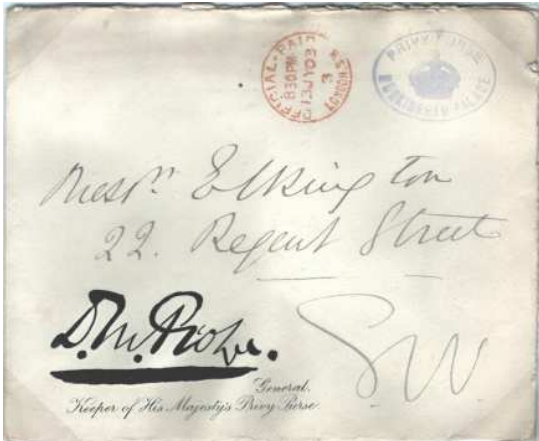 OFFICIAL PAID
8.30 PM
13 JY 03
3
LONDON S.W
PRIVY PURSE
BUCKINGHAM PALACE
Messrs Elkington
22. Regent Street
S.W
D.M. Probyn.
General.
Keeper of His Majesty's Privy Purse.